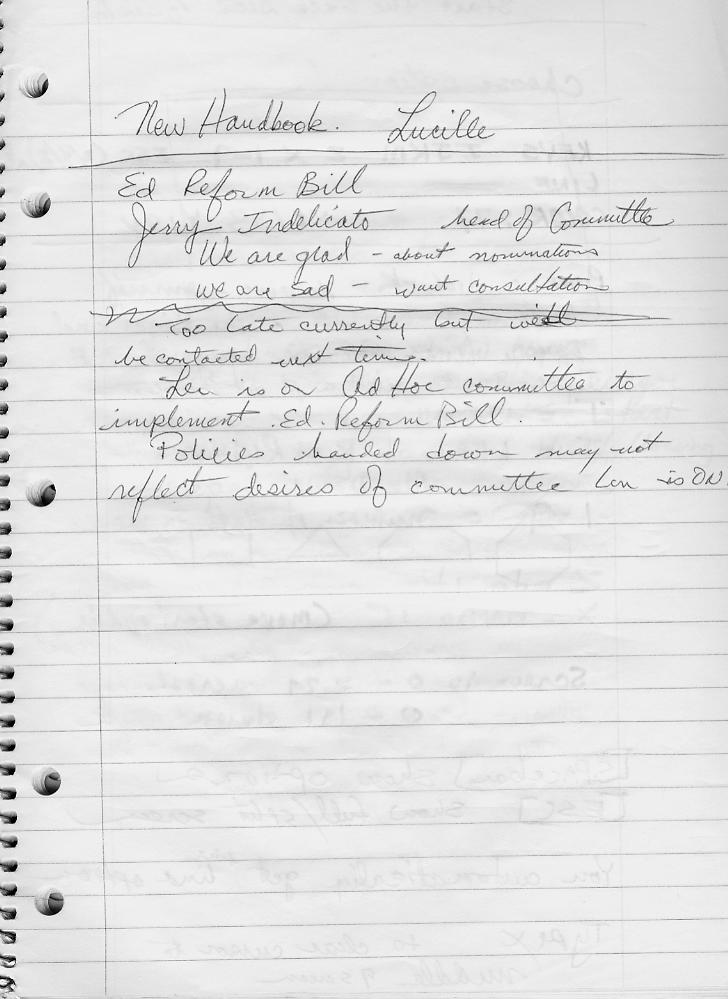 New Handbook. Lucille
Ed Reform Bill
Jerry Indelicato head of Committee
We are glad - about nominations
we are sad - want consultation
Too late currently but will
be contacted next time.
Len is on Ad Hoc committee to
implement Ed. Reform Bill.
Policies handed down may not
reflect desires of committee Len is ON.